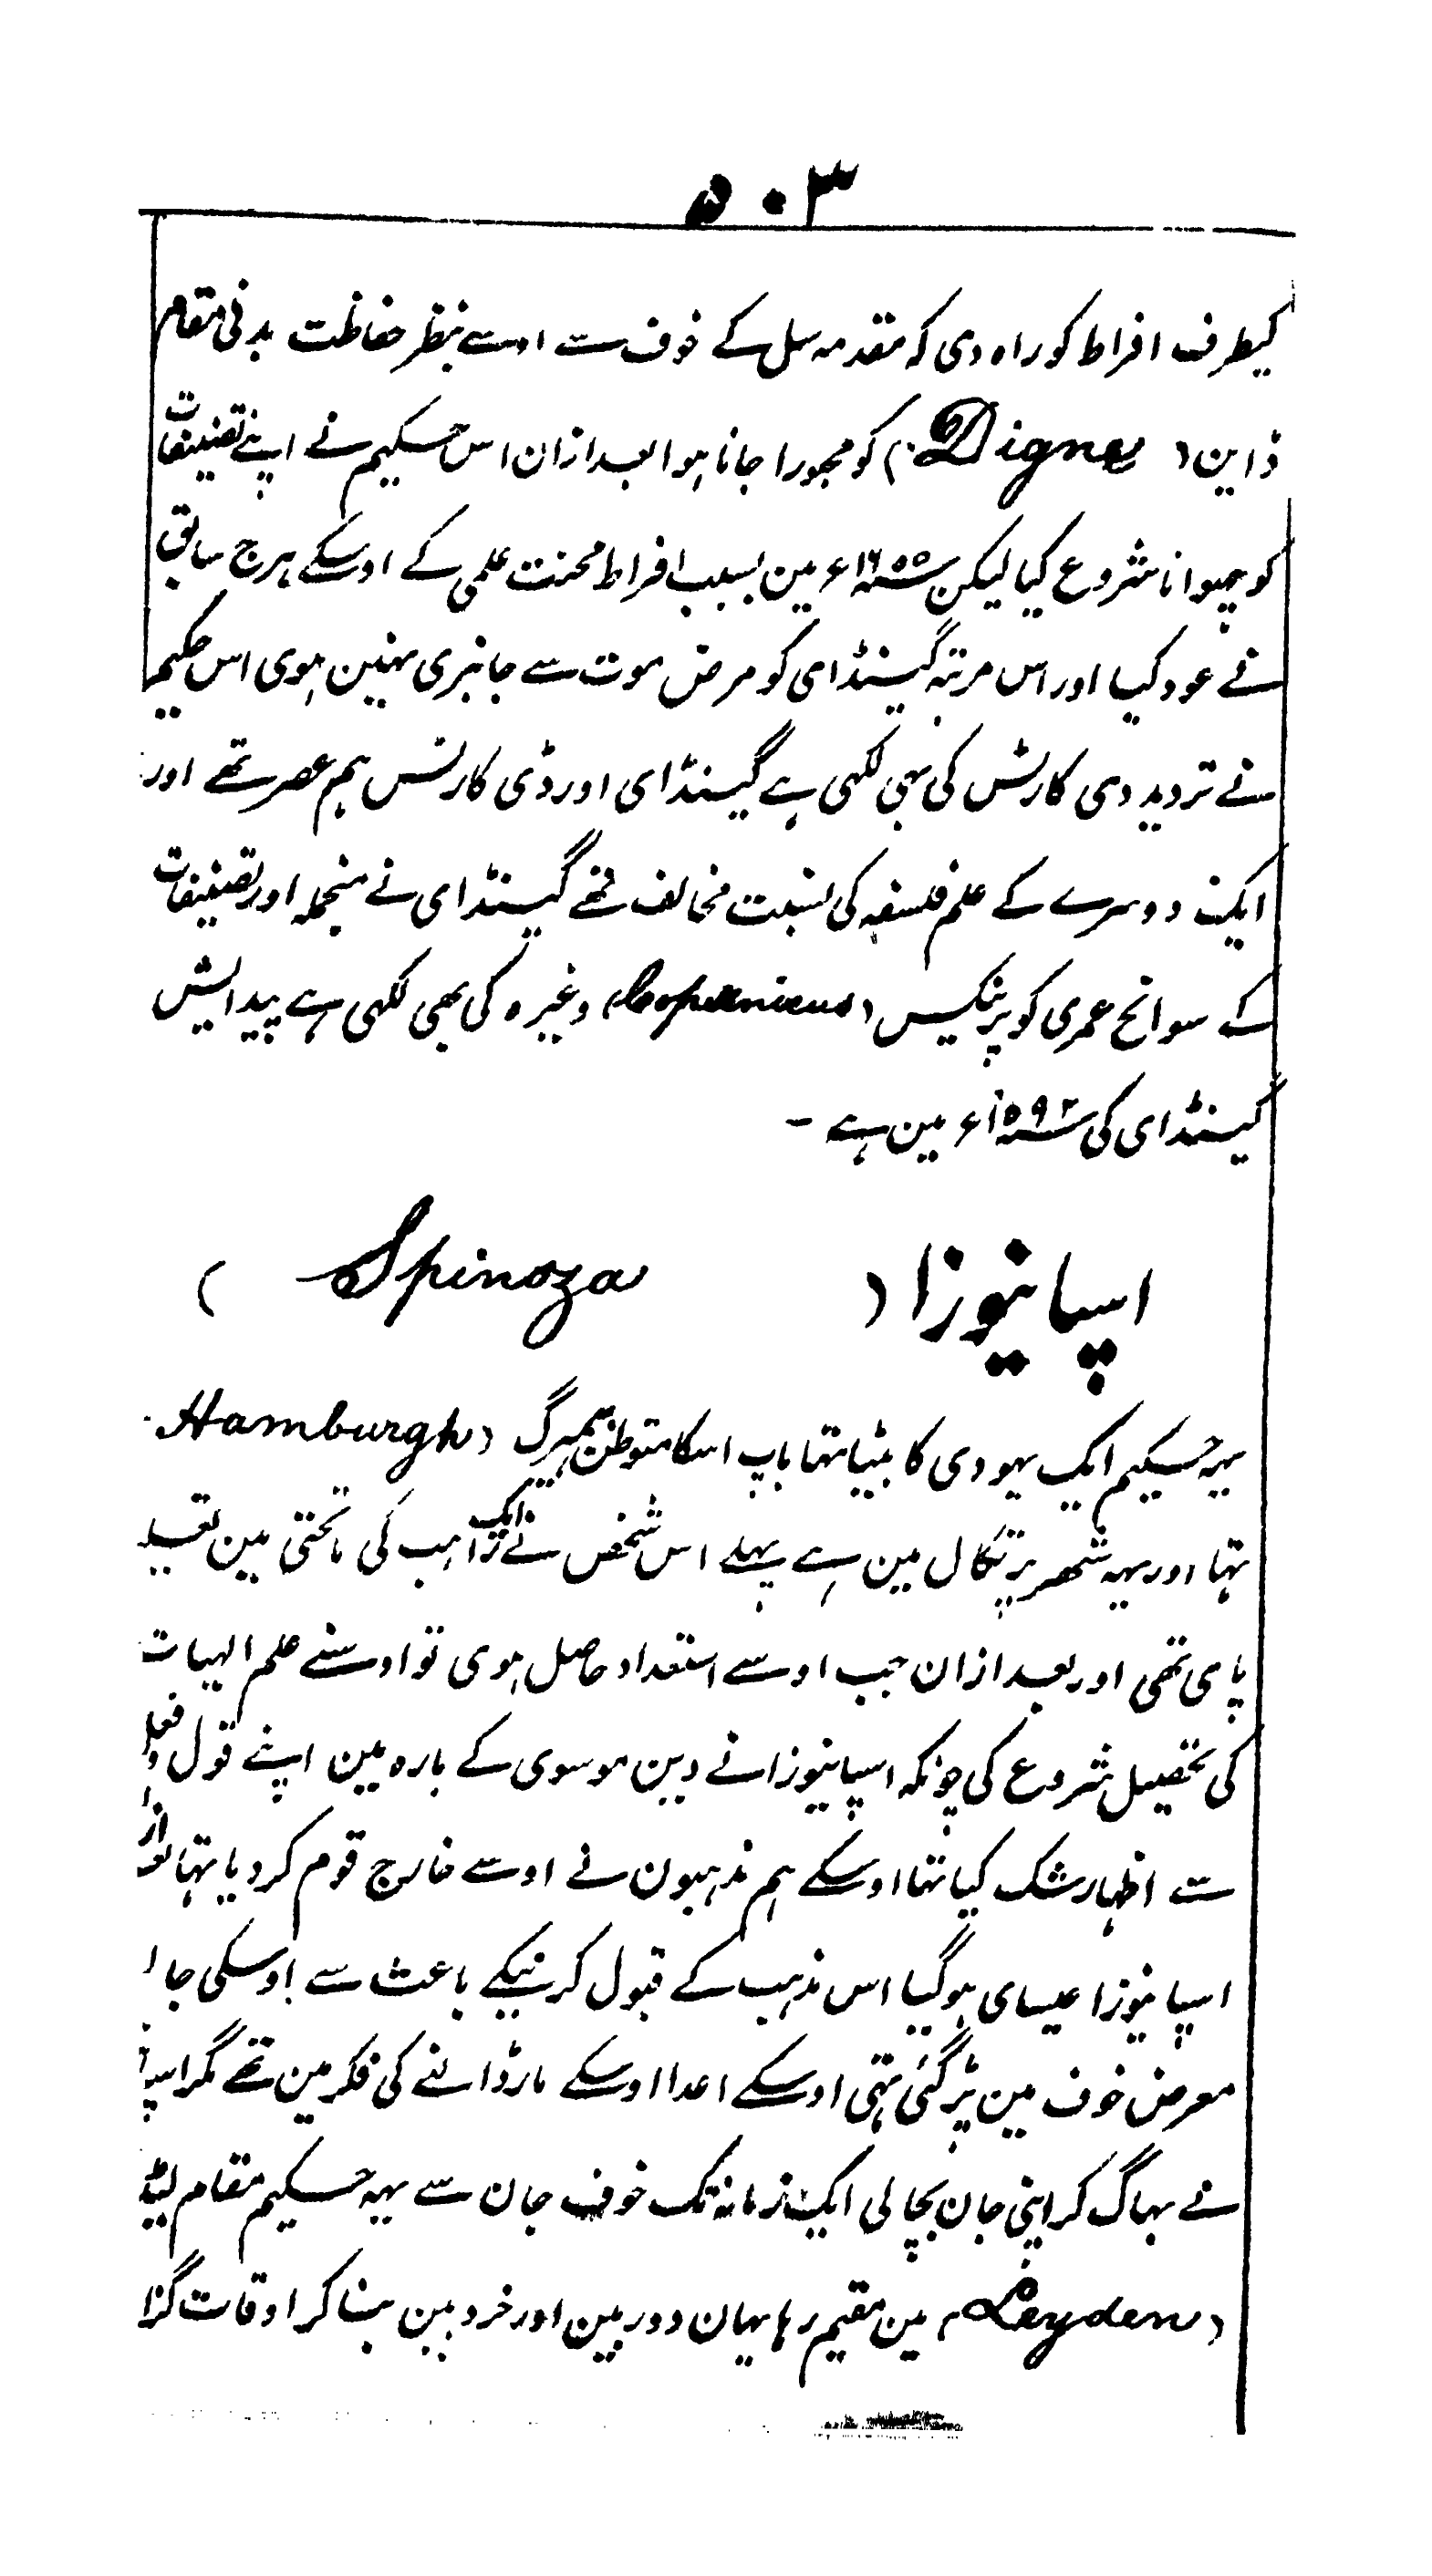 ۵۰۳
کیطرف افراط کو راہ دی کہ مقدمہ سل کے خوف سے اوسے بنظر حفاظت بدنی مقام
ڈاین (Digne) کو مجبورا جانا ہوا بعد ازان اس حکیم نے اپنے تصنیفات
کو چھپوانا شروع کیا لیکن سنہ ۱۶۵۵ء مین بسبب افراط محنت علمی کے اوسکے ہرج سابق
نے عود کیا اور اس مرتبہ گیسنڈای کو مرض موت سے جانبری نہین ہوی اس حکیم
نے تردید دی کارٹس کی بہی لکہی ہے گیسنڈای اور ڈی کارٹس ہم عصر تھے اور
ایک دوسرے کے علم فلسفہ کی نسبت مخالف تھے گیسنڈای نے منجملہ اور تصنیفات
کے سوانح عمری کوپرنکیس (Copernicus) وغیرہ کی بھی لکہی ہے پیدایش
گیسنڈای کی سنہ ۱۵۹۲ء مین ہے ۔
اسپانیوزا ( Spinoza )
یہہ حکیم ایک یہودی کا بیٹا تہا باپ اسکا متوطن ہمبرگ (Hamburgh
تہا اور یہہ شھر پرتگال مین ہے پہلے اس شخص نے ایک راہب کی ماتحتی مین تعلیم
پای تھی اور بعد ازان جب اوسے استعداد حاصل ہوی تو اوسنے علم الہیات
کی تحصیل شروع کی چونکہ اسپانیوزا نے دین موسوی کے بارہ مین اپنے قول و فعل
سے اظہار شک کیا تہا اوسکے ہم مذہبون نے اوسے خارج قوم کر دیا تہا
اسپانیوزا عیسای ہوگیا اس مذہب کے قبول کرنیکے باعث سے اوسکی جا
معرض خوف مین پڑ گئی تہی اوسکے اعدا اوسکے مار ڈالنے کی فکر مین تھے مگر اسپا
نے بہاگ کر اپنی جان بچا لی ایک زمانہ تک خوف جان سے یہہ حکیم مقام لیڈ
(Leyden) مین مقیم رہا یہان دوربین اور خردبین بنا کر اوقات گزا